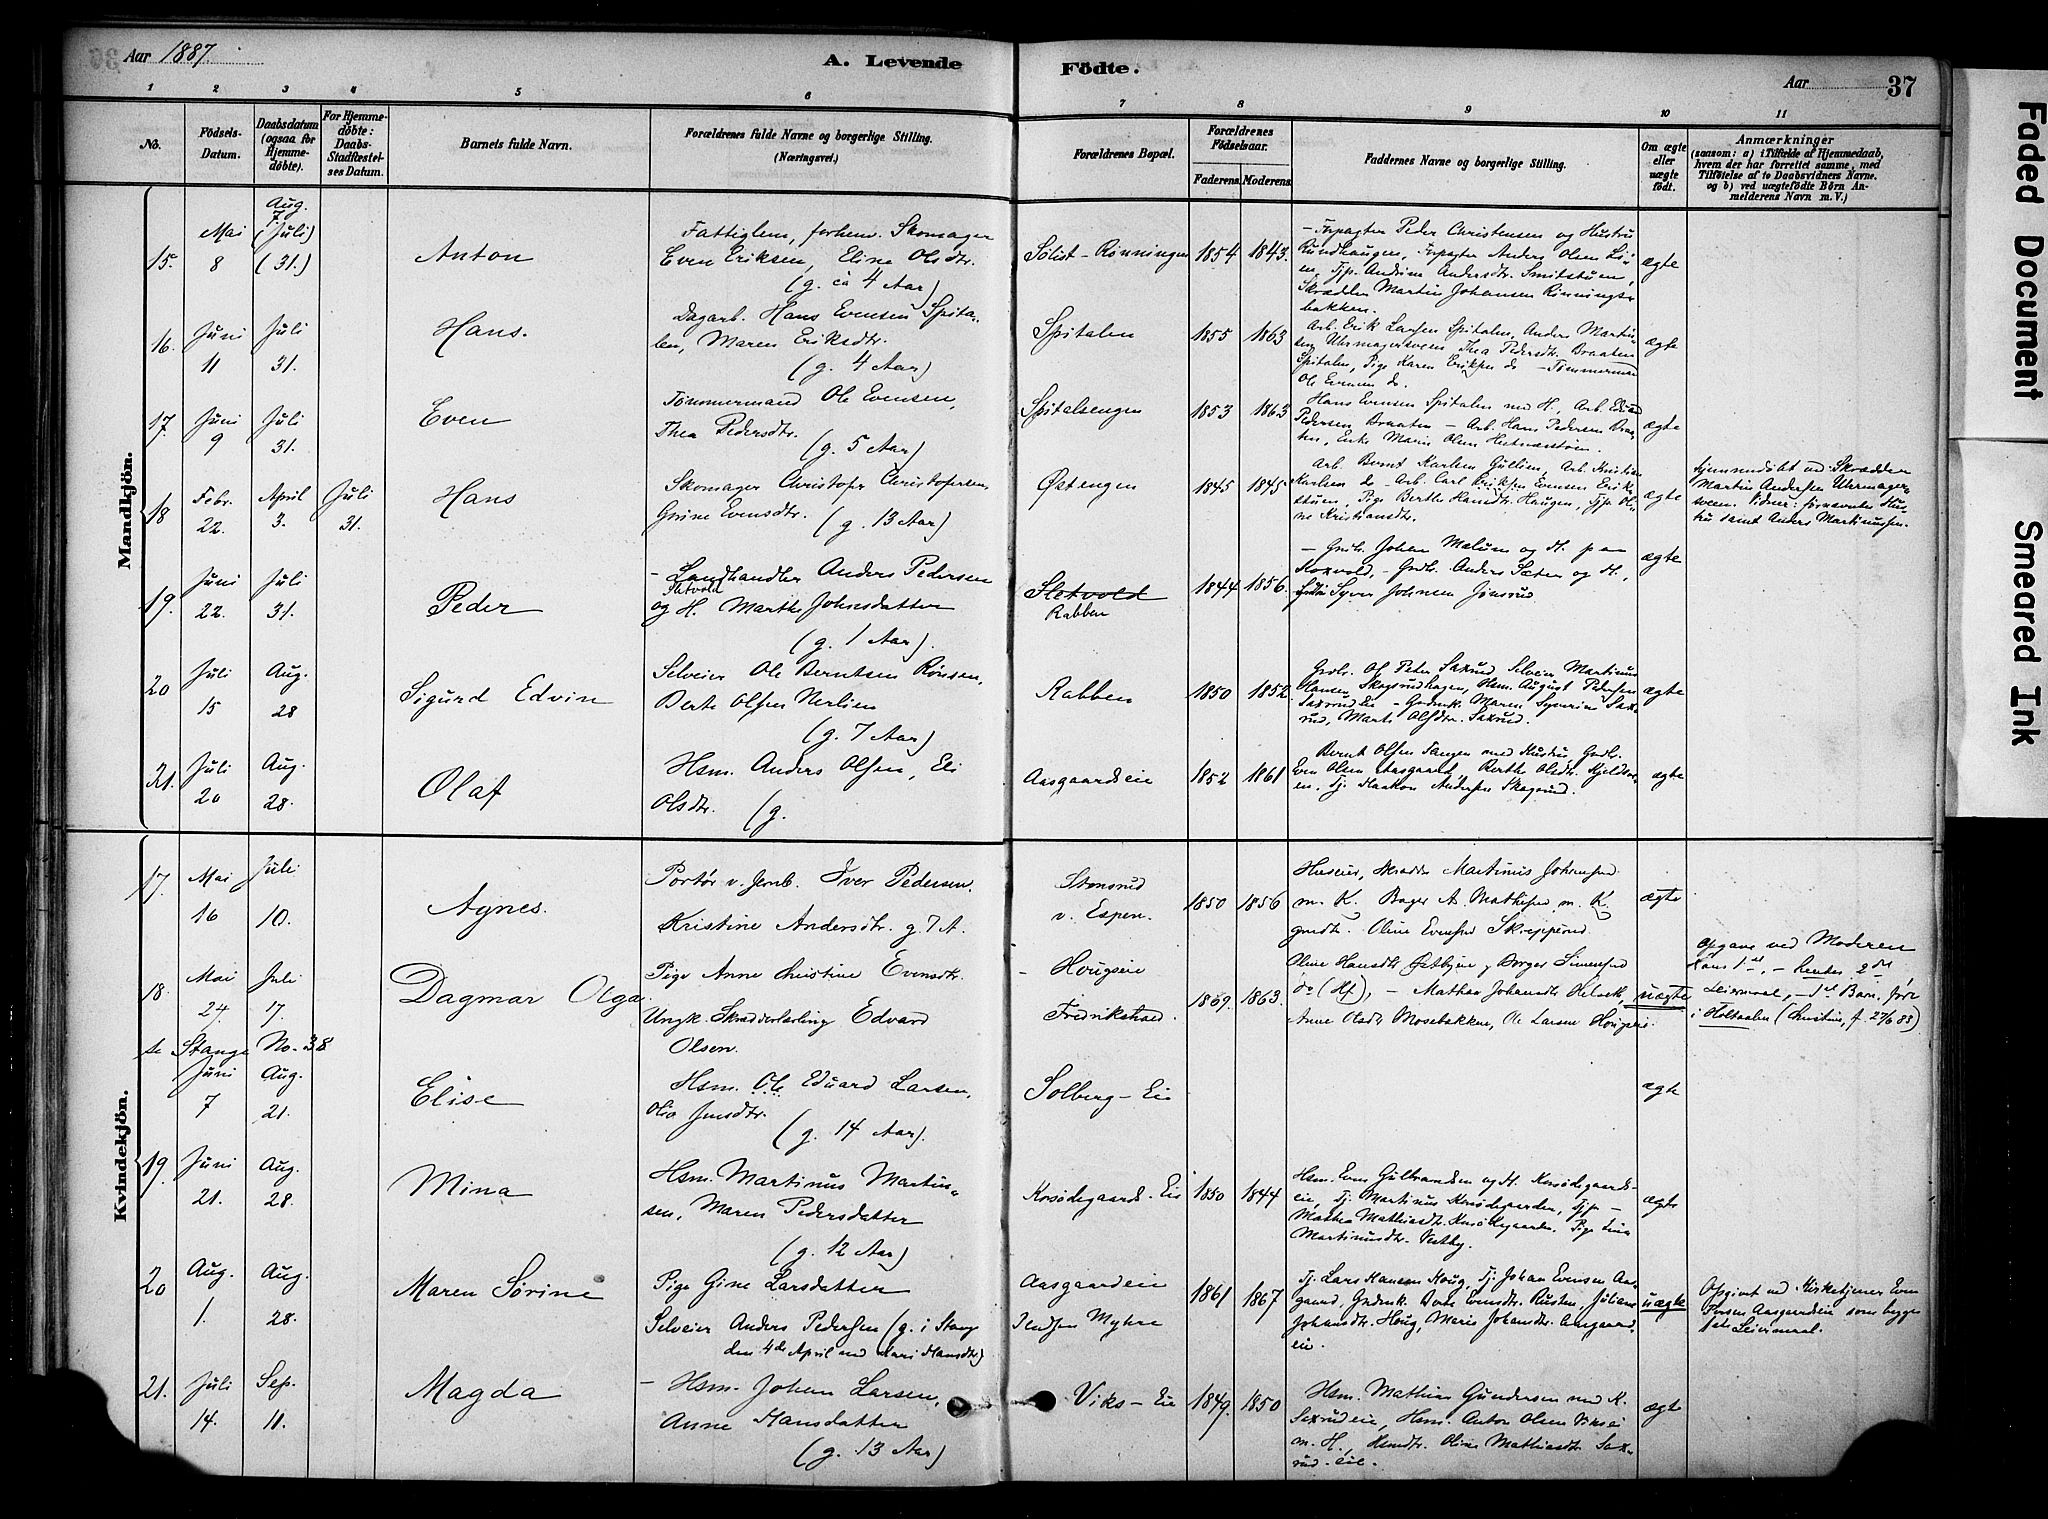 Aar 1887.
A. Levende Födte.
Aar 37
1 2 3 4 5 6 7 8 9 10 11
No.
Födsels-Datum.
Daabsdatum (ogsaa for Hjemmedöbte).
For Hjemmedöbte: Daabs-Stadfæstelses Datum.
Barnets fulde Navn.
Forældrenes fulde Navne og borgerlige Stilling.
(Næringsvei.)
Forældrenes Bopæl.
Forældrenes Födselsaar.
Faderens. Moderens.
Faddernes Navne og borgerlige Stilling.
Om ægte eller uægte født.
Anmærkninger
(saasom: a) i Tilfælde af Hjemmedaab,
hvem der har forrettet samme, med
Tilföielse af to Daabsvidners Navne.
og b) ved uægtefödte Börn An-
melderens Navn m. V.)
Mandkjön.
15. Mai 8 Aug. 7 (i Juli) (31.)
Anton
Fattiglem, forhen. Skomager
Even Eriksen, Eline Olsdtr.
(g. ca 4 Aar)
Sölist-Rönningen 1854 1843.
Forpagter Peder Christensen og Hustru
Rundhaugen, Forpagter Anders Olsen
Tjp. Andrine Andersdtr. Smitstuen,
Skrædder Martin Johansen Rönnings-
bakken.
ægte
16. Juni 11 Juli 31.
Hans.
Dagarb. Hans Evensen Spita-
len, Maren Eriksdtr.
(g. 4 Aar)
Spitalen 1855 1863
Arb. Erik Larsen Spitalen, Anders Martin-
sen Uhrmagersveen Thea Pedersdtr. Braaten
Spitalen, Pige Karen Eriksen do - Tömmermand
Ole Evensen do.
ægte
17. Juni 9 Juli 31.
Even
Tömmermand Ole Evensen,
Thea Pedersdtr.
(g. 5 Aar)
Spitalsengen 1853 1863
Hans Evensen Spitalen med H., Arb. Eduard
Pedersen Braaten - Arb. Hans Pedersen Braa-
ten, Enke Marie Olsen
ægte
18 Febr. 22. April 3. Juli 31.
Hans
Skomager Christofer Christofersen,
Grine Evensdtr. (g. 13 Aar)
Østengen 1845 1845
Arb. Bernt Karlsen Gullien, Arb. Kristian
Karlsen do - Arb. Carl Evensen Erik-
stuen, Pige Berthe Hansdtr. Haugen, Tjp. Oli-
ne Kristiansdtr.
ægte
hjemmedöbt ved Skrædder
Martin Andersen Uhrmager-
sveen. Vidner: förnævntes Hus-
tru samt Anders Martinussen.
19. Juni 22. Juli 31.
Peder
- Landhandler Anders Pedersen
Sletvold
og H. Marthe Johnsdatter
(g. 1 Aar).
Sletvold
Rabben
1844 1856.
- Grdb. Johan Mælum og H.
- Grdb. Anders Sæter og H.,
Syver Johnsen Jönsrud
ægte
20 Juli 15 Aug. 28
Sigurd Edvin
Selveier Ole Berntsen Rönsen,
Berte Olsen Nerlien
(g. 7 Aar)
Rabben 1850 1852.
Grdb. Ol. Peter Saxrud, Selveier Martinus
Hansen Skogsrudhagen, Hsm. August Pedersen
Saxrudeie - Grdmk. Maren Syverine Sax-
rud, Marte Olsdtr. Saxrud.
ægte
21. Juli 20 Aug. 28.
Olaf
Hsm. Anders Olsen, Eli
Olsdtr. (g.
Aasgaardseie 1852 1861
Bernt Olsen Tangen med Hustru, Grdb.
Even Olsen Aasgaard, Berthe Olsdtr. Kjelds-
en, Tj. Haakon Andersen Skogsrud.
ægte
Kvindekjön.
17. Mai 16 Juli 10.
Agnes.
Portör v. Jernb. Iver Pedersen.
Kristine Andersdtr. g. 7 A.
Stensrud
v. Espen.
1850 1856
Huseier, Skrædder Martinus Johansen
m. K. Bager A. Mathisen m. K.
Oline Evensen Skrepperud
ægte
18. Mai 24. Juli 17.
Dagmar Olga
Pige Anne Christine Evensdtr.
Ungk. Skrædderlærling Edvard
Olsen.
- Hougseie
Fredrikstad.
1869. 1863.
Oline Hansdtr Östbyeie, Borger Simensen
do (H), - Mathea Johansdtr
Anne Olsdtr Mosebakken, Ole Larsen Hougseie.
uægte
Opgave ved Moderen
Hans 1ste, - hendes 2det
Leiermaal, - 1st Barn före
i Holtaalen (Christine, f. 27/6 83)
se Stange No. 38
Juni 7 Aug. 21.
Elise
Hsm. Ole Eduard Larsen,
Olia Jensdtr.
(g. 14 Aar).
Solberg-Eie
ægte
19. Juni 21. Aug. 28.
Mina
Hsm. Martinus Martin-
sen, Maren Pedersdatter
(g. 12 Aar)
Korsödegaards-Eie 1850 1844
Hsm. Even Gulbrandsen og H. Korsödegaards-
eie, Tj. Martinus Korsödegaarden, Tjp. -
Mathea Mathisdtr. Korsödegaarden, Pige Lina
Martinusdtr. Vestby.
ægte
20 Aug. 1. Aug. 28.
Maren Sörine
Pige Gine Larsdatter
Selveier Anders Pedersen (g. i Stange
den 4de April med Mari Hansdtr.)
Aasgaardseie
Myhre
1861 1867
Tj. Lars Hansen Houg, Tj. Johan Evensen Aas-
gaard, Grdmk. Berte Evensdtr. Rusten, Juliane
Johansdtr. Houg, Marie Johansdtr. Aasgaards-
eie.
uægte
Opgivet ved Kirketjener Even
Iversen Aasgaardseie som begges
1ste Leiermaal.
21. Juli 14. Sep. 11.
Magda
- Hsm. Johan Larsen,
Anne Hansdatter
(g. 13 Aar)
Viks-Eie 1849. 1850
Hsm. Mathias Gundersen med K.
Saxrudeie, Hsm. Anton Olsen Vikseie
m. H., Hsmdtr. Oline Mathisdtr. Sax-
rud-eie.
ægte
Faded Document
Smeared Ink